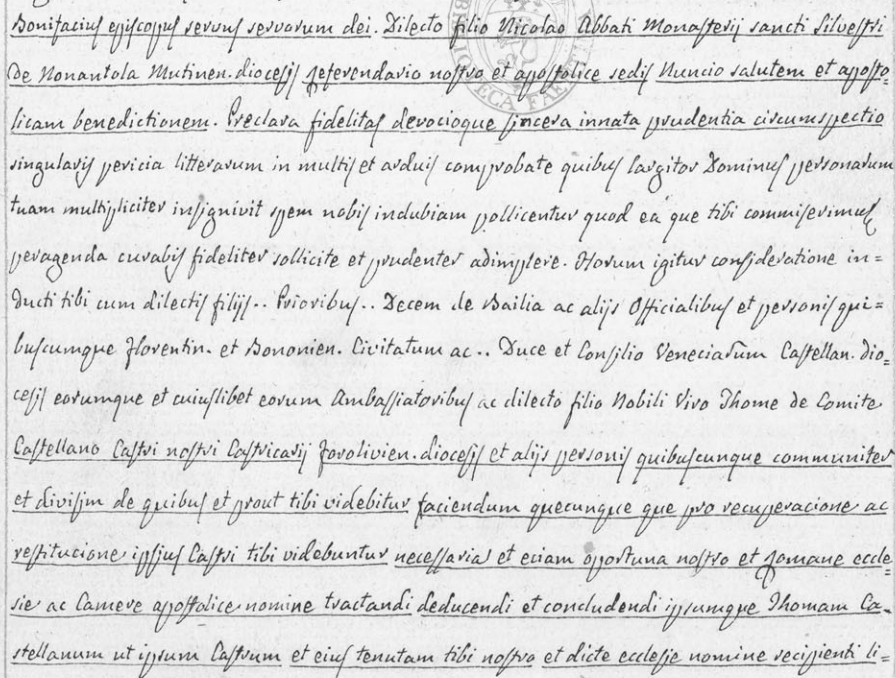 Bonifacius episcopus servus servorum dei. Dilecto filio Nicolao Abbati Monasterij sancti Silvestri
De Nonantola Mutinen. diocesis referendario nostro et apostolice sedis Nuncio salutem et aposto-
licam benedictionem. Preclara fidelitas devocioque sincera innata prudentia circumspectio
singularis pericia litterarum in multis et arduis comprobate quibus largitor Dominus personarum
tuam multipliciter insignivit spem nobis indubiam pollicentur quod ea que tibi commiserimus
peragenda curabis fideliter sollicite et prudenter adimplere. Horum igitur consideratione in=
ducti tibi cum dilectis filijs .. Prioribus .. Decem de Bailia ac alijs Officialibus et personis qui=
buscumque Florentin. et Bononien. Civitatum ac .. Duce et Consilio Veneciarum Castellan. dio=
cesis eorumque et cuiuslibet eorum Ambassiatoribus ac dilecto filio Nobili Viro Thome de Comite
Castellano Castri nostri Castricarij forolivien. diocesis et alijs personis quibuscunque communiter
et divisim de quibus et prout tibi videbitur faciendum quecunque que pro recuperacione ac
restitucione ipsius Castri tibi videbuntur necessaria et eciam oportuna nostro et Romane eccle=
sie ac Camere apostolice nomine tractandi deducendi et concludendi ipsumque Thomam Ca-
stellanum ut ipsum Castrum et eius tenutam tibi nostro et dicte ecclesie nomine recipienti li=